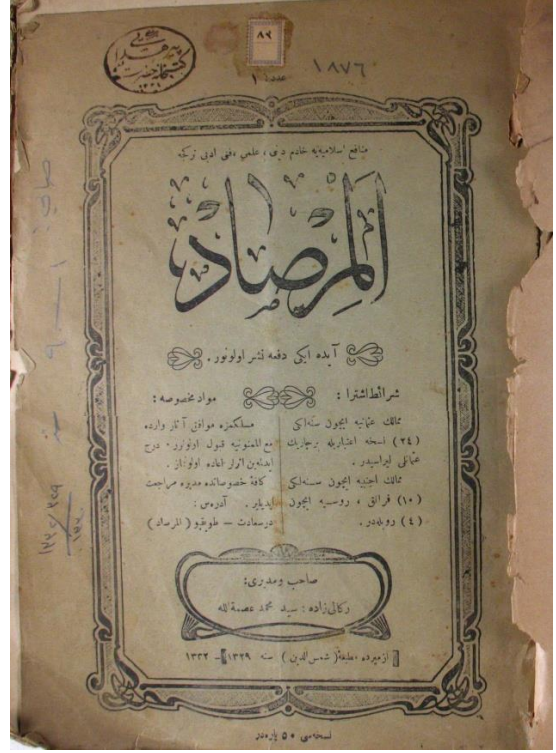 ٨٩
عدد : ١
١٨٧٦
منافع اسلاميه‌يه خادم دينى ، علمى ، فنى ادبى تركجه
اَلمِرْصاد
آيده ايكى دفعه نشر اولونور .
شرائط اشترا :
ممالك عثمانيه ايچون سنه‌لكى
(٢٤) نسخه اعتباريله برچاريك
عثمانلى ليراسيدر .
ممالك اجنبيه ايچون سنه‌لكى
(١٠) فرانق ، روسيه ايچون
(٤) روبله‌در .
مواد مخصوصه :
مسلكمزه موافق آثار وارده
مع الممنونيه قبول اولنور . درج
ايدلمه‌ين اثرلر اعاده اولونماز .
كافۀ خصوصاتده مديره مراجعت
ايديلير . آدرس :
درسعادت — طوپقپو (المرصاد)
صاحب ومديرى :
سيد محمد عصمة الله
ازميرده مطبعۀ (شمس الدين) سنه ١٣٢٩ – ١٣٣٢
نسخه‌سى ٥٠ پاره‌در